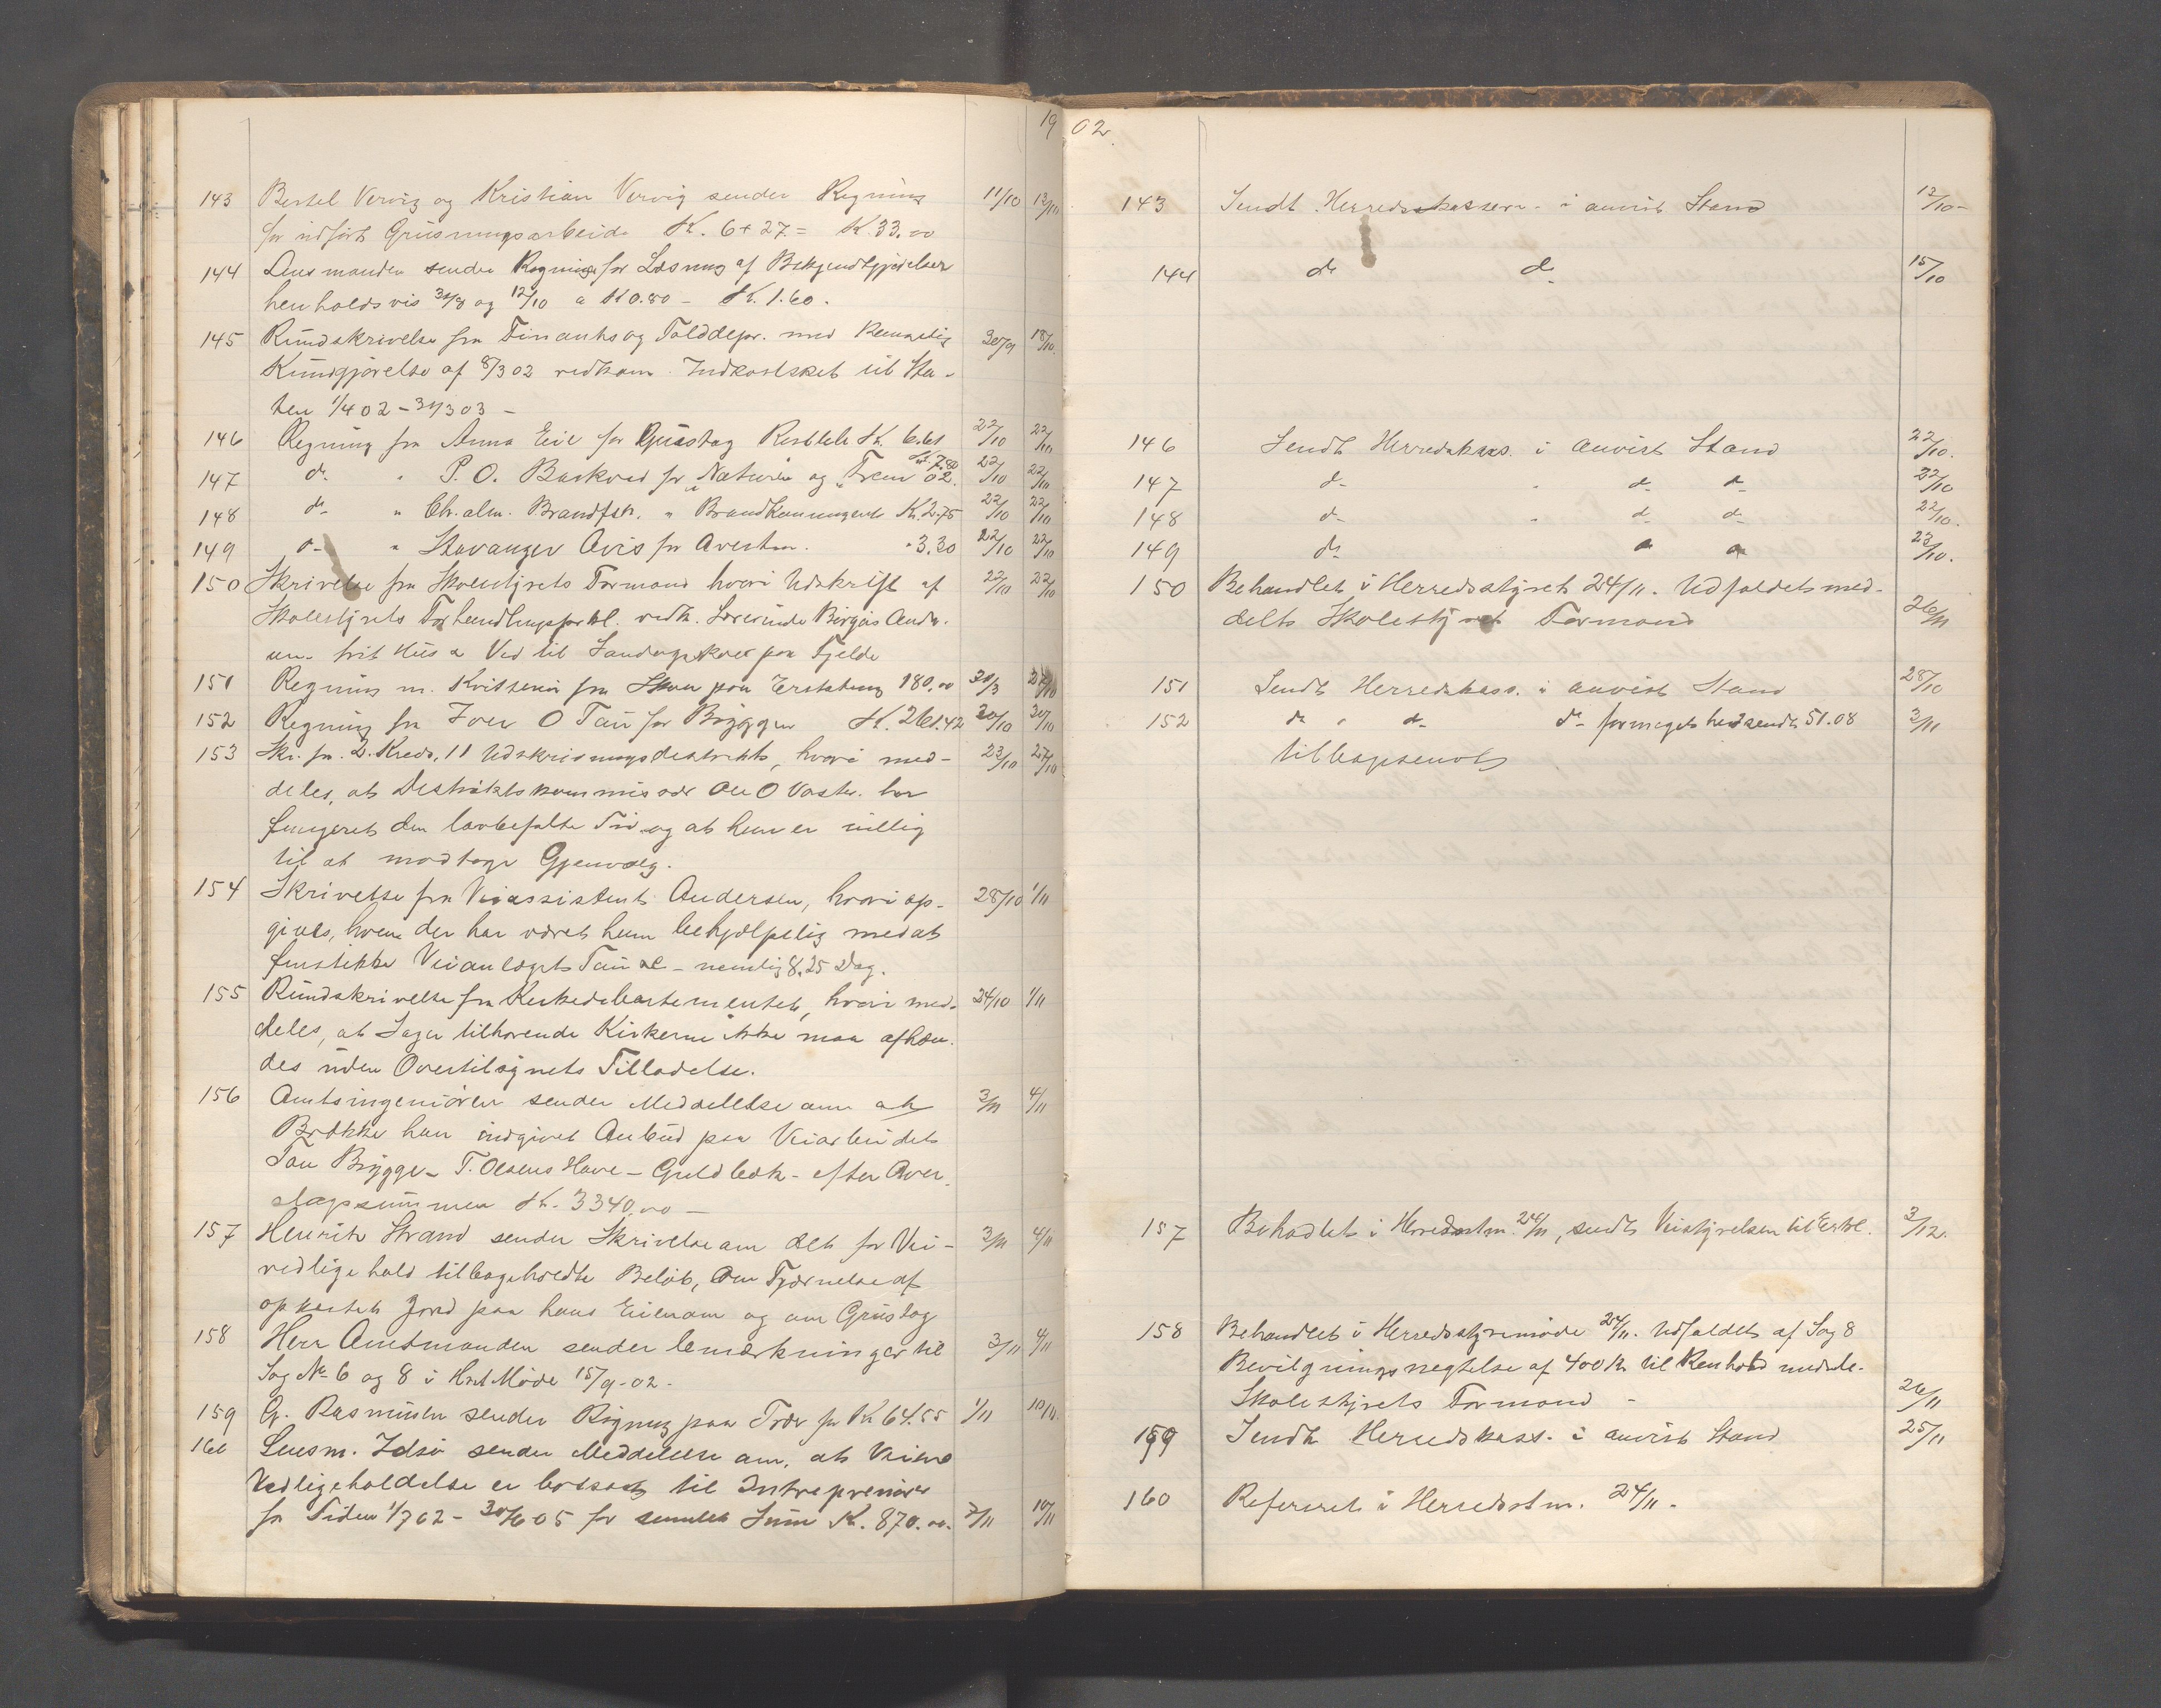 1902.
143 Bertel Vervig og Kristian Vervig sender Regning 11/10 12/10
for udført Grusningsarbeide K. 6 + 27 = K. 33.00
144 Lensmanden sender Regning for Læsning af Bekjendtgjørelser
henholdsvis 31/8 og 12/10 a K 0.80 - K. 1.60.
145 Rundskrivelse fra Finants og Tolddepr. med 30/9 18/10.
Kundgjørelse af 8/3 02 vedkom. til Sta-
ten 1/4 02 - 31/3 03 -
146 Regning fra Anna Eie for Grustag K. 6.61 22/10 22/10
K. 7.80
147 do " P. O. for "Naturen og "Frem" 02. 22/10 22/10
148 do " Chr. alm. Brandfsk. " K. 2.75 22/10 22/10
149 do " Stavanger Avis for Avertm. " 3.30 22/10 22/10
150 Skrivelse fra Skolestyrets Formand hvori Udskrift af 22/10 22/10
Skolestyrets Forhandlingsprtkl. vedk. Lærerinde Andr.
sen. frit Hus & Ved til paa Fjelde
151 Regning m. Kvittering fra paa Erstatning 180.00
152 Regning fra Iver O Tau for Bryggen K. 261.42 30/10 30/10
153 Skr. fra 2. Kreds. 11 Udskrivningsdestrikts, hvori med- 23/10 27/10
deles, at Destriktskommissær Ole O Vaste. har
fungeret den lovbefalte Tid og at han er villig
til at modtage Gjenvalg.
154 Skrivelse fra Veiassistent Andersen, hvori op- 28/10 1/11
gives, hvem der har været ham behjælpelig med at
finstikke Veianlægets Tau - nemlig 8.25 Dag.
155 Rundskrivelse fra Kirkedebartementet, hvori med- 24/10 1/11
deles, at Sager tilhørende Kirkerne ikke maa afhæn-
des uden Overtilsynets Tilladelse.
156 Amtsingeniøren sender Meddelelse om at 3/11 4/11
Brække han indgivet Anbud paa Veiarbeidet
Tau Brygge - T. Olsens Have - Guldbæk - efter Over-
slagssummen K. 3340.00 -
157 Henrik Strand sender Skrivelse om det for Vei- 3/11 4/11
vedligehold tilbageholdte Beløb, om Fjærnelse af
opkastet Jord paa hans Eiendom og om Grustag
158 Herr Amtmanden sender bemærkninger til 3/11 4/11
Sag No 6 og 8 i Hrst Møde 15/9-02.
159 G. Rasmusen sender Rigning paa Trær for K 64.55 1/11 10/11.
160 Lensm. Idsø sender Meddelelse om, at Veiens
Vedligeholdelse er bortsat til Intreprenører
for Tiden 1/7 02 - 30/6 05 for samlet Sum K. 870.00. 7/11 10/11
143 Sendt Herredskassere- i anvist Stand 13/10-
144 do do 15/10
146 Sendt Herredskass. i anvist Stand 22/10.
147 do " do do 22/10
148 do " do do 22/10.
149 do " " 23/10.
150 Behandlet i Herredsstyret 24/11. Udfaldet med-
delt Skolestyrets Formand 26/11
151 Sendt Herredskass. i anvist Stand 28/10
152 do " do do formeget hidsendt 51.08 3/11
tilbagesendt
157 Behadlet i Herredsstm. 24/11, sendt Veistyrelsen til Erkl. 3/12.
158 Behandlet i Herredsstyremøde 24/11. Udfaldet af Sag 8
Bevilgningsnegtelse af 400 K. til Renhold meddelt
Skolestyrets Formand - 26/11
159 Sendt Herredskass. i anvist Stand 25/11
160 Refereret i Herredsstm. 24/11.